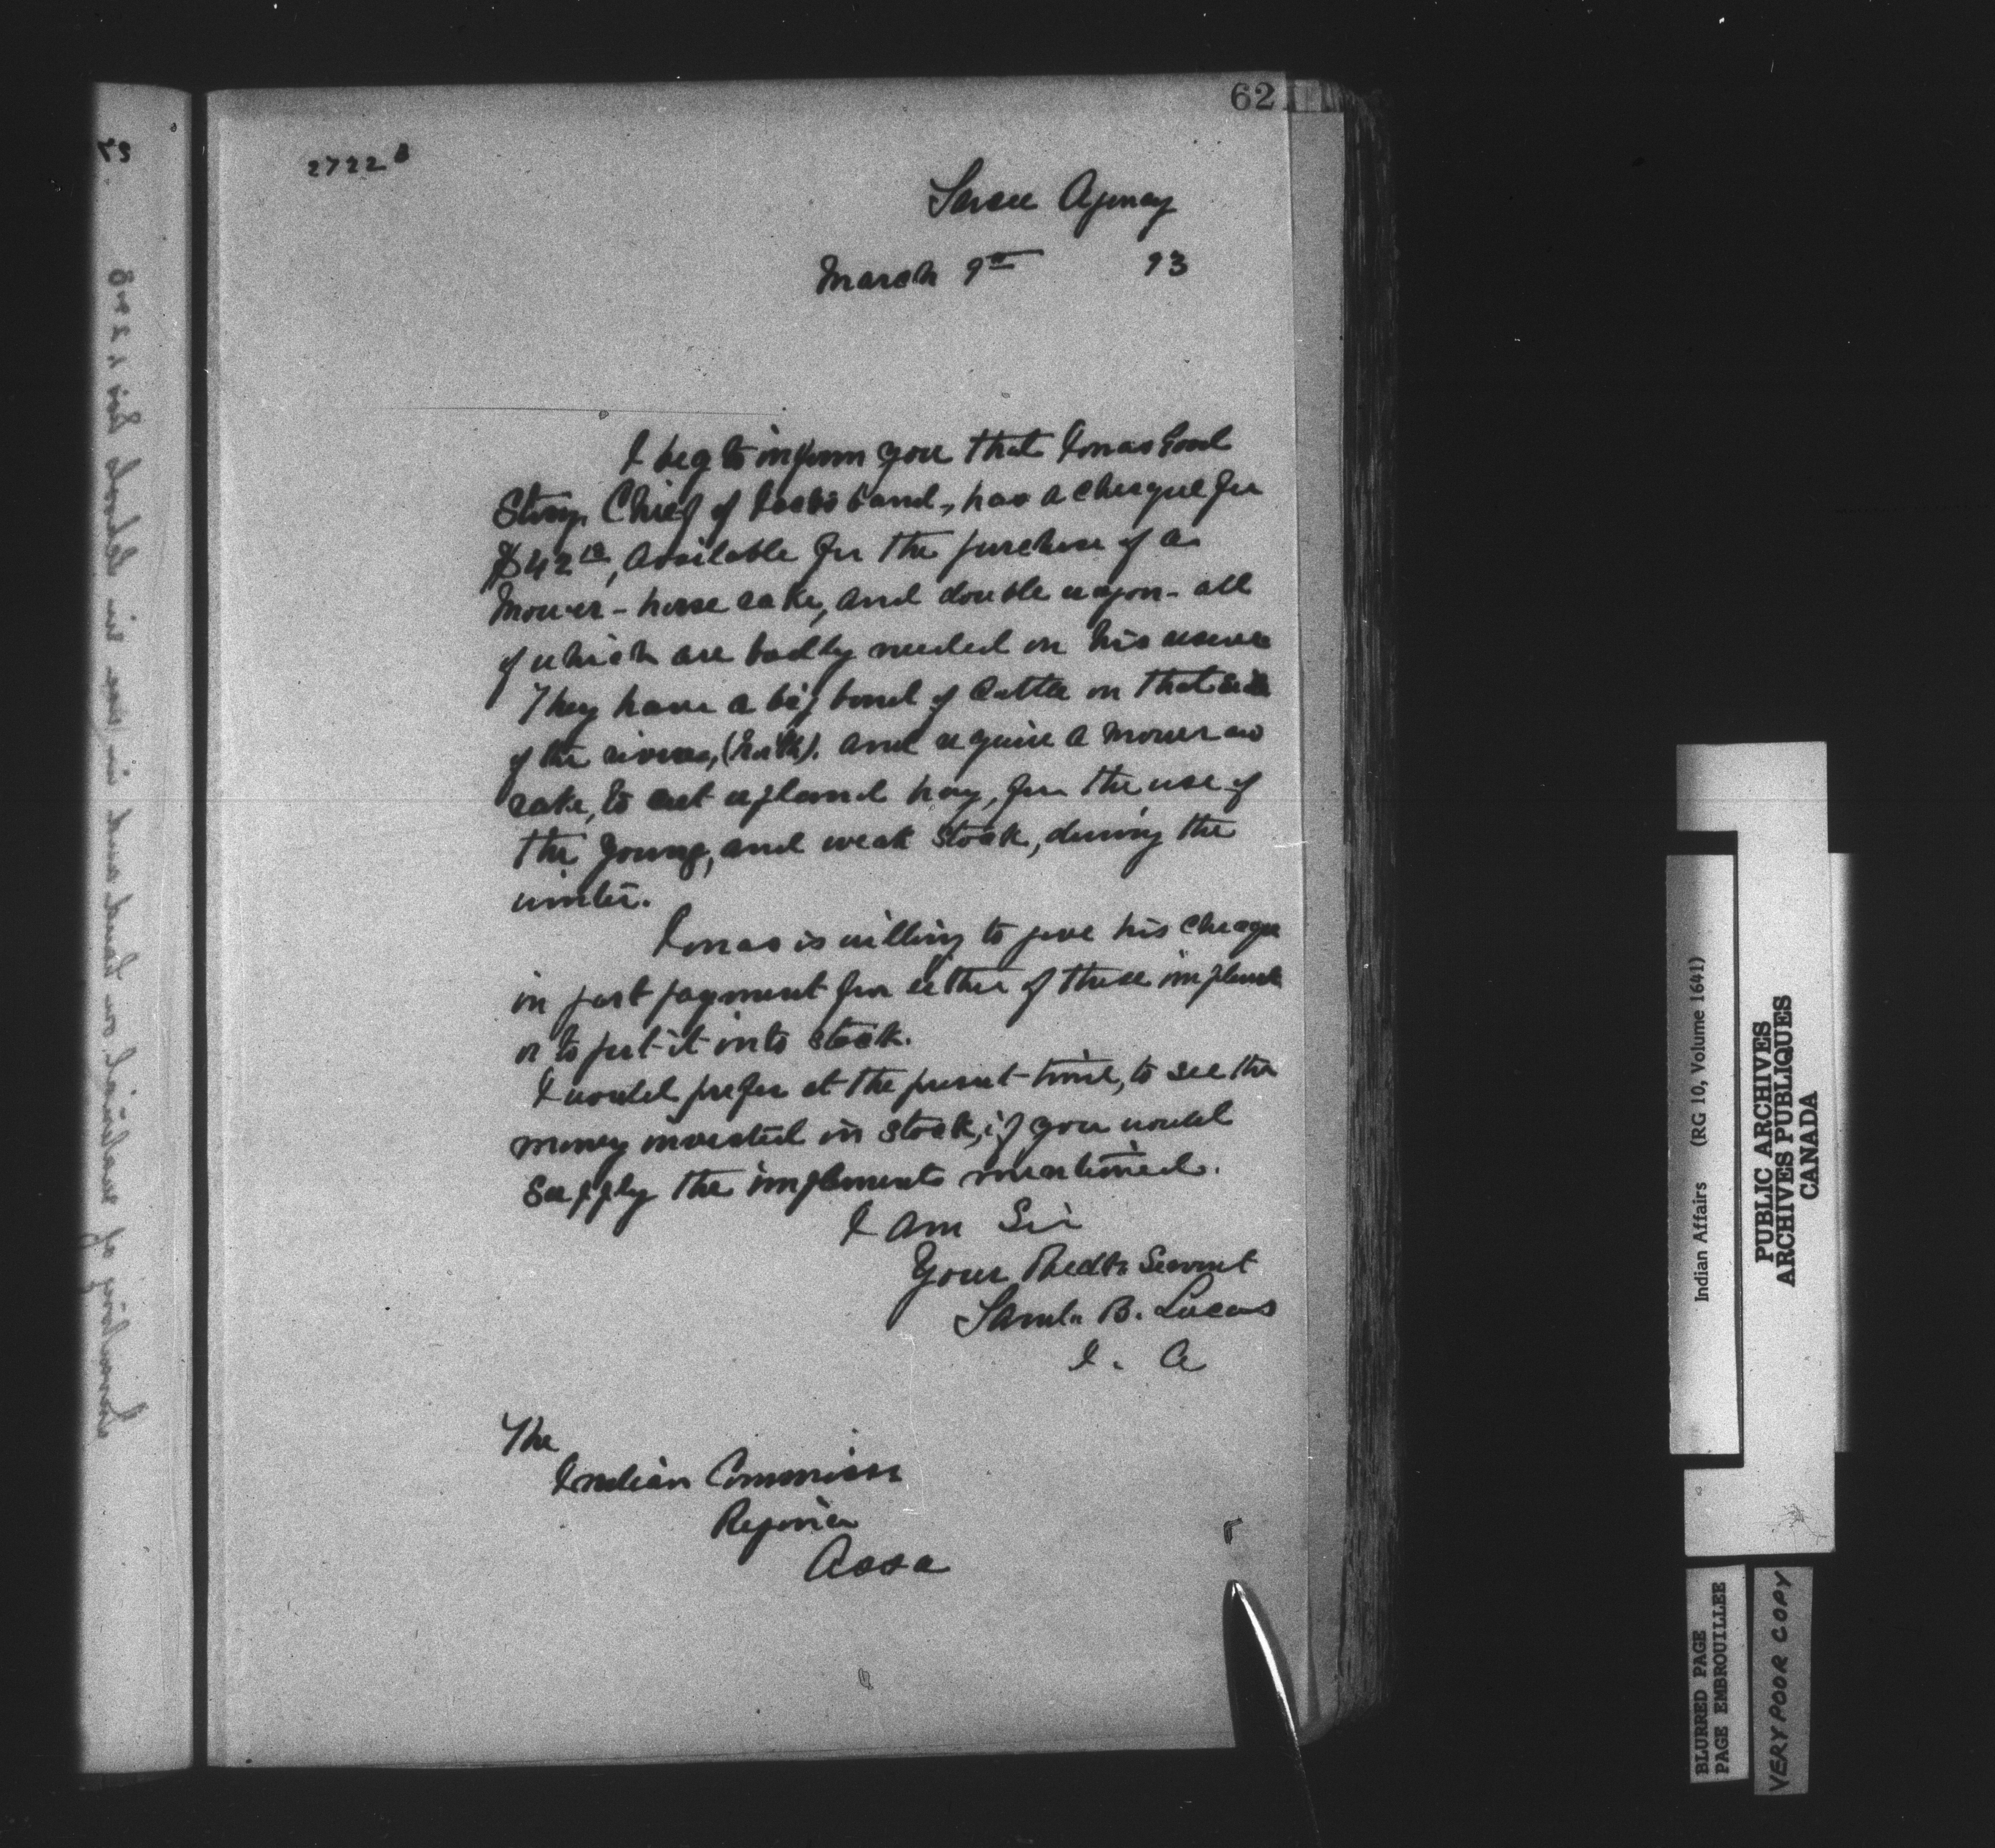 62
2722
Sarcee Agency
March 9th 93
I beg to inform you that Jonas Good
Stony, Chief of band, has a cheque for
$42, available for the purchase of a
Mower - horse rake, and double wagon - all
of which are badly needed on his reserve
They have a big band of Cattle on that side
of the river, (North). and require a mower and
rake, to cut upland hay, for the use of
the young, and weak stock, during the
winter.
Jonas is willing to give his cheque
in part payment for either of these implements
or to put it into stock.
I would prefer at the present time, to see the
money invested in stock, if you would
Supply the implements mentioned.
I am Sir
Your Obedt. Servant
Saml. B. Lucas
I. A
The
Indian Commissr
Regina
Assa
Indian Affairs (RG 10, Volume 1641)
PUBLIC ARCHIVES
ARCHIVES PUBLIQUES
CANADA
BLURRED PAGE
PAGE EMBROUILLEE
VERY POOR COPY